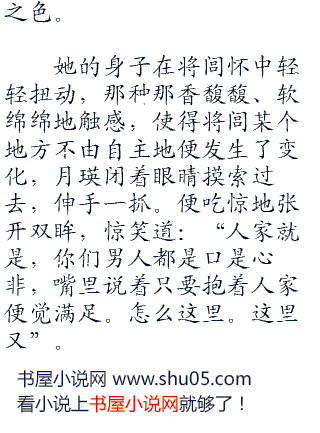 之色。
她的身子在将闾怀中轻
轻扭动，那种那香馥馥、软
绵绵地触感，使得将闾某个
地方不由自主地便发生了变
化，月瑛闭着眼睛摸索过
去，伸手一抓。便吃惊地张
开双眸，惊笑道：“人家就
是，你们男人都是口是心
非，嘴里说着只要抱着人家
便觉满足。怎么这里。这里
又”。
书屋小说网 www.shu05.com
看小说上书屋小说网就够了！